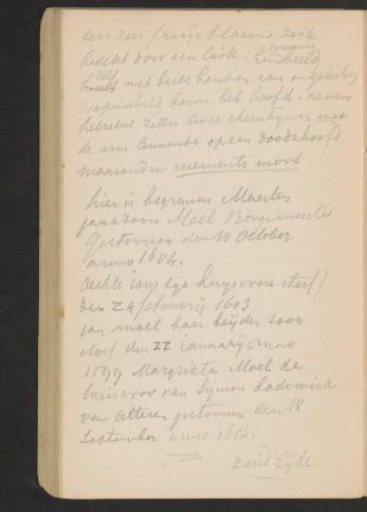 een zeer fraaije blaauwe zerk
bedekt door een luik. Een vrouwen beeld
met beide handen een
wapenschild boven het hoofd. nevens
hetzelve zitten twee cherubijnen met
de arm leunende op een doodshoofd
waaronder memento mori
hier is begraven Maerten
Janszoon Moel Borgemeester
Gestorven den 10 October
anno 1604.
Aechte Jans zijn huysvrou sterf
den 24 februarij 1603
Jan Moel haer beijder soon
sterf den 22 january anno
1599 Margrieta Moel de
huisvrou van Symon Lodewick
van Alteren gestorven den 18
September anno 1614.
Zuid Zijde